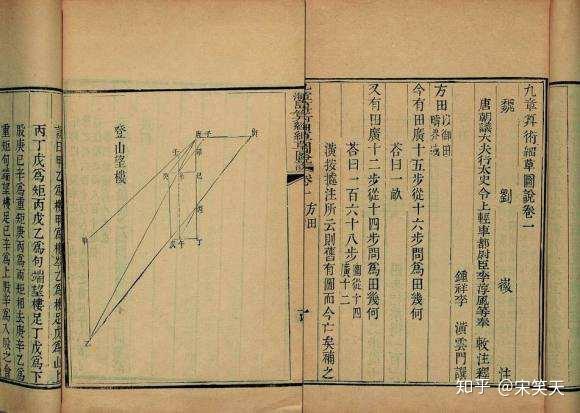 九章筭術細草圖說卷一
魏 劉 徽 注
唐朝議大夫行太史令上輕車都尉臣李淳風等奉 敕注釋
鍾祥李 潢雲門譔
方田 以御田疇界域
今有田廣十五步從十六步問爲田幾何
荅曰一畝
又有田廣十二步從十四步問爲田幾何
荅曰一百六十八步 圖從十四廣十二
潢按據注所云則舊有圖而今亡矣補之
卷一 方田
登山望樓
丙丁戊爲矩丙戊乙爲句端望樓足丁戊爲下
股庚巳辛爲重矩庚丙爲兩矩相去庚辛乙爲
重矩句端望樓足巳辛爲上股辛爲入股之會
知乎 @宋笑天